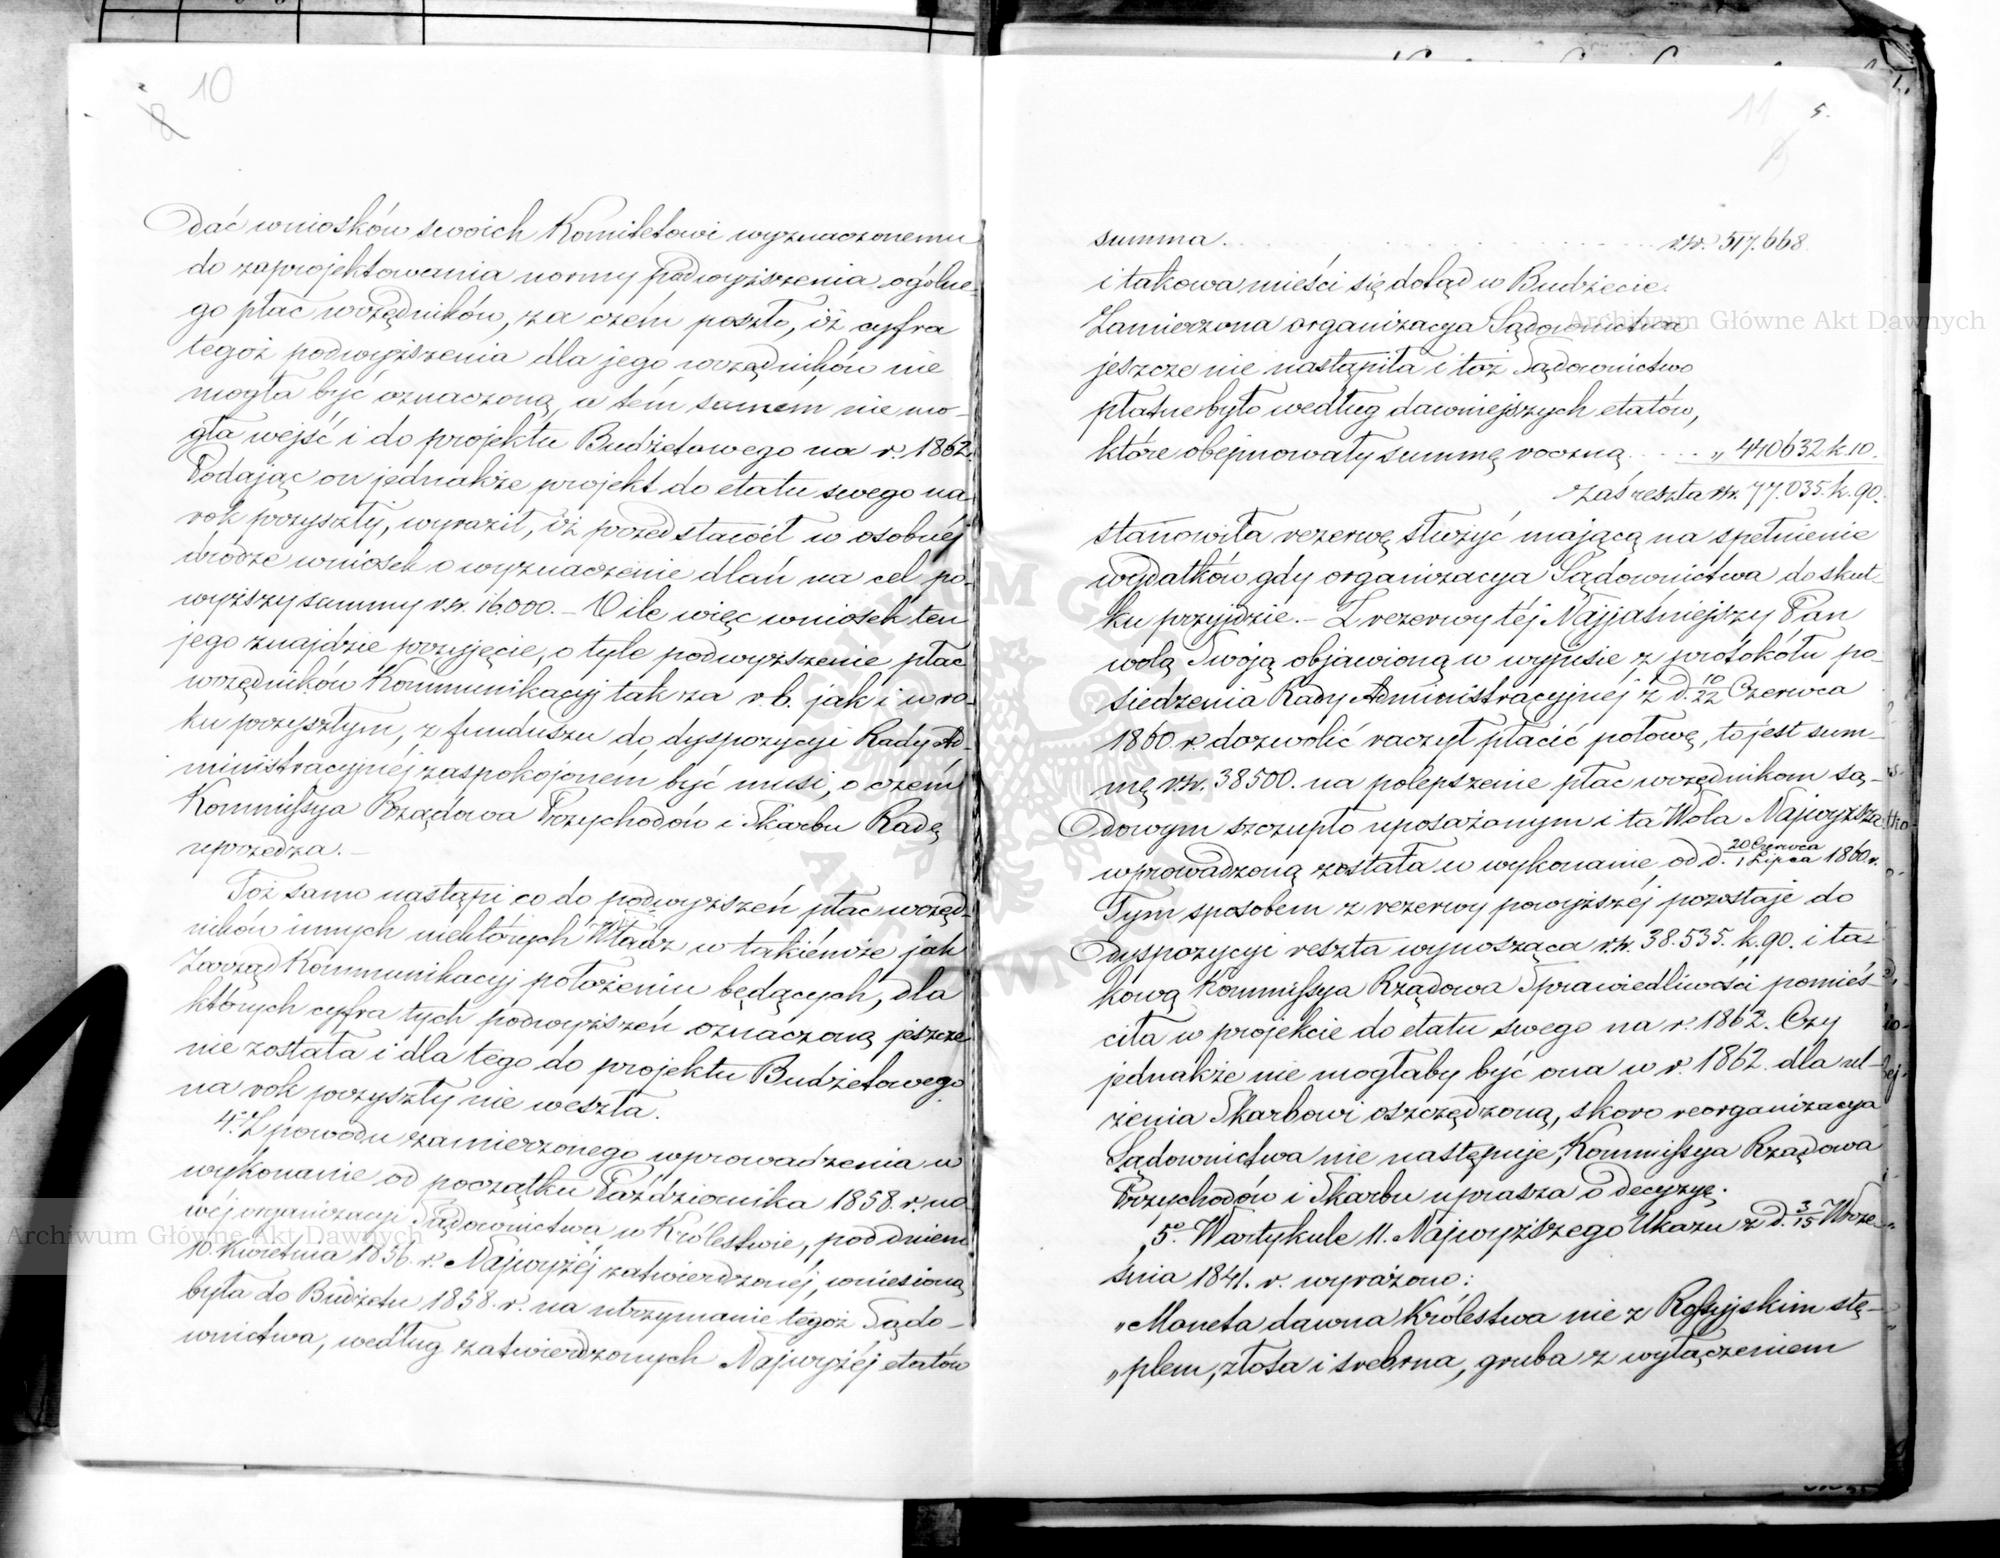 10
8
dać wniosków swoich Komitetowi wyznaczonemu
do zaprojektowania normy podwyższenia ogólne-
go płac urzędników, za czém poszło, iż cyfra
tegoż podwyższenia dla jego urzędników nie
mogła być oznaczoną, a tém samém nie mo-
gła wejść i do projektu Budżetowego na r. 1862.
Podając on jednakże projekt do etatu swego na
rok przyszły, wyraził, iż przedstawił w osobnéj
drodze wniosek o wyznaczenie dlań na cel po-
wyższy summy rsr. 16.000. – O ile więc wniosek ten
jego znajdzie przyjęcie, o tyle podwyższenie płac
urzędników Kommunikacyj tak za r. b. jak i w ro-
ku przyszłym, z funduszu do dyspozycyi Rady Ad-
ministracyjnéj zaspokojonem być musi, o czém
Kommissya Rządowa Przychodów i Skarbu Radę
uprzedza. –
Toż samo nastąpi co do podwyższeń płac urzęd-
ników innych niektórych Władz w takiémże jak
Zarząd Kommunikacyj położeniu będących, dla
których cyfra tych podwyższeń oznaczoną jeszcze
nie została i dla tego do projektu Budżetowego
na rok przyszły nie weszła.
4. Z powodu zamierzonego wprowadzenia w
wykonanie od początku Października 1858. r. no-
wéj organizacyi Sądownictwa w Królestwie, pod dniem
10. Kwietnia 1856. r. Najwyżéj zatwierdzonéj, wniesioną
była do Budżetu 1858. r. na utrzymanie tegoż Sądo-
wnictwa, według zatwierdzonych Najwyżéj etatów
11
5.
summa . . . . . rsr. 517.668
i takowa mieści się dotąd w Budżecie.
Zamierzona organizacya Sądownictwa
jeszcze nie nastąpiła i toż Sądownictwo
płatne było według dawniejszych etatów,
które obejmowały summę roczną . . . „ 440632 k. 10.
zaś reszta rsr. 77.035. k. 90.
stanowiła rezerwę służyć mającą na spełnienie
wydatków gdy organizacya Sądownictwa do skut-
ku przyjdzie. – Z rezerwy téj Najjaśniejszy Pan
wolą Swoją objawioną w wypisie z protokółu po-
siedzenia Rady Administracyjnéj z d. 10/22 Czerwca
1860. r. dozwolić raczył płacić połowę, to jest sum-
mę rsr. 38500. na polepszenie płac urzędnikom są-
dowym szczupło uposażonym i ta Wola Najwyższa
wprowadzoną została w wykonanie od d. 20 Czerwca/1 Lipca 1860. r.
Tym sposobem z rezerwy powyższéj pozostaje do
dyspozycyi reszta wynosząca rsr. 38.535. k. 90. i ta-
kową Kommissya Rządowa Sprawiedliwości pomieś-
ciła w projekcie do etatu swego na r. 1862. Czy
jednakże nie mogłaby być ona w r. 1862. dla ul-
żenia Skarbowi oszczędzoną, skoro reorganizacya
Sądownictwa nie następuje, Kommissya Rządowa
Przychodów i Skarbu uprasza o decyzyę.
5o. W artykule 11. Najwyższego Ukazu z d. 3/15 Wrze-
śnia 1841. r. wyrażono:
„Moneta dawna Królestwa nie z Rossyjskim stę-
„plem, złota i srebrna, gruba z wyłączeniem
Archiwum Główne Akt Dawnych
Archiwum Główne Akt Dawnych
Archiwum Główne Akt Dawnych